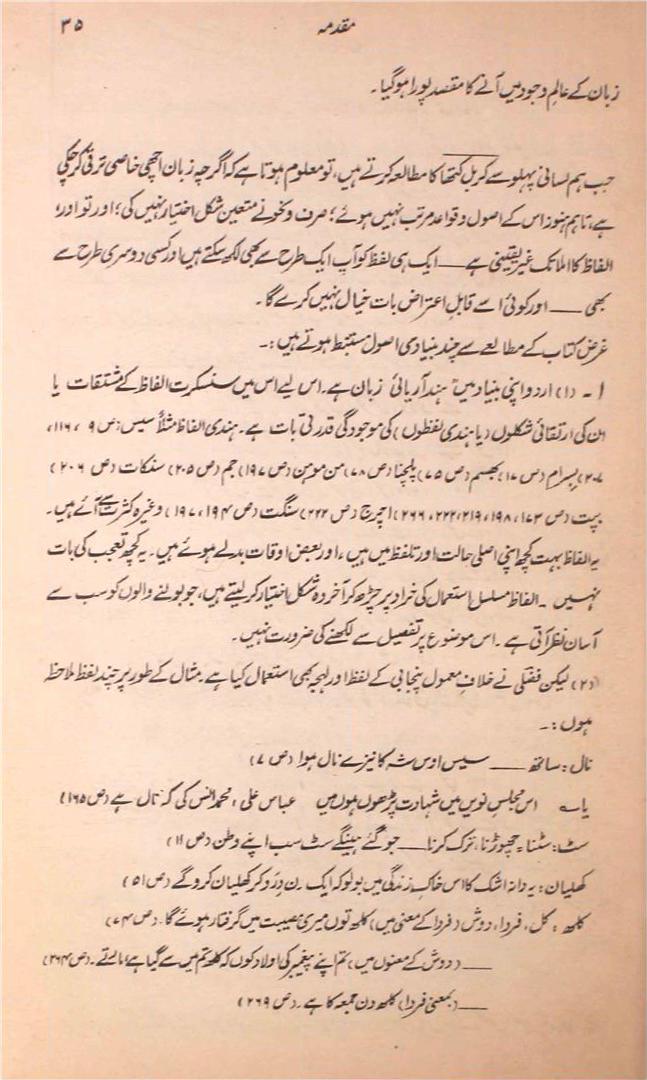 مقدمہ ۳۵
زبان کے عالمِ وجود میں آنے کا مقصد پورا ہوگیا۔
جب ہم لسانی پہلو سے کربل کتھا کا مطالعہ کرتے ہیں، تو معلوم ہوتا ہے کہ اگرچہ زبان اچھی خاصی ترقی کرچکی
ہے، تاہم ہنوز اس کے اصول و قواعد مرتب نہیں ہوئے؛ صرف و نحو نے متعین شکل اختیار نہیں کی؛ اور تو اور،
الفاظ کا املا تک غیر یقینی ہے — ایک ہی لفظ کو آپ ایک طرح سے بھی لکھ سکتے ہیں اور کسی دوسری طرح سے
بھی — اور کوئی اسے قابلِ اعتراض بات خیال نہیں کرے گا۔
غرض کتاب کے مطالعے سے چند بنیادی اصول مستنبط ہوتے ہیں:۔
۱۔ (۱) اردو اپنی بنیاد میں ہند آریائی زبان ہے۔ اس لیے اس میں سنسکرت الفاظ کے مشتقات یا
ان کی ارتقائی شکلوں (یا ہندی لفظوں) کی موجودگی قدرتی بات ہے۔ ہندی الفاظ مثلاً سیس: ص ۹، ۱۱۶،
۲۰۷) بسرام (ص ۱۷) بھسم (ص ۷۵) پلچنا (ص ۷۸) من موہن (ص ۱۹۷) جم (ص ۲۰۵) سنکات (ص ۲۰۶)
بپت (ص ۱۷۳، ۱۹۸، ۲۱۹، ۲۲۲، ۲۶۶) اچرج (ص ۲۲۲) سنگت (ص ۱۹۴، ۱۹۷) وغیرہ کثرت سے آئے ہیں۔
یہ الفاظ بہت کچھ اپنی اصلی حالت اور تلفظ میں ہیں، اور بعض اوقات بدلے ہوئے ہیں۔ یہ کچھ تعجب کی بات
نہیں۔ الفاظ مسلسل استعمال کی خراد پر چڑھ کر آخر وہ شکل اختیار کر لیتے ہیں، جو بولنے والوں کو سب سے
آسان نظر آتی ہے۔ اس موضوع پر تفصیل سے لکھنے کی ضرورت نہیں۔
(۲) لیکن فضلی نے خلافِ معمول پنجابی کے لفظ اور لہجہ بھی استعمال کیا ہے۔ مثال کے طور پر چند لفظ ملاحظہ
ہوں:۔
نال: ساتھ — سیس اوس شہ کا نیزے نال ہوا (ص ۷)
یا ؎ اس مجلسِ نویں میں شہادت پڑھوں ہوں میں عباس علی، محمد انس کی کہ نال ہے (ص ۱۶۵)
سٹ: سٹنا، چھوڑنا، ترک کرنا — جو گئے ہینگے سٹ سب اپنے وطن (ص ۱۱)
کھلیان: یہ دانہ اشک کا اس خاکِ زندگی میں بولو کہ ایک دن درو کر کھلیان کرو گے (ص ۵۱)
کلھ: کل، فردا، دوش (فردا کے معنی میں) کلھ توں میری مصیبت میں گرفتار ہوئے گا۔ (ص ۷۴)
— (دوش کے معنوں میں) تم اپنے پیغمبر کی اولاد کوں کہ کلھ تم میں سے گیا ہے، مارتے۔ (ص ۲۶۴)
— (بمعنی فردا) کلھ دن جمعہ کا ہے۔ (ص ۲۶۹)